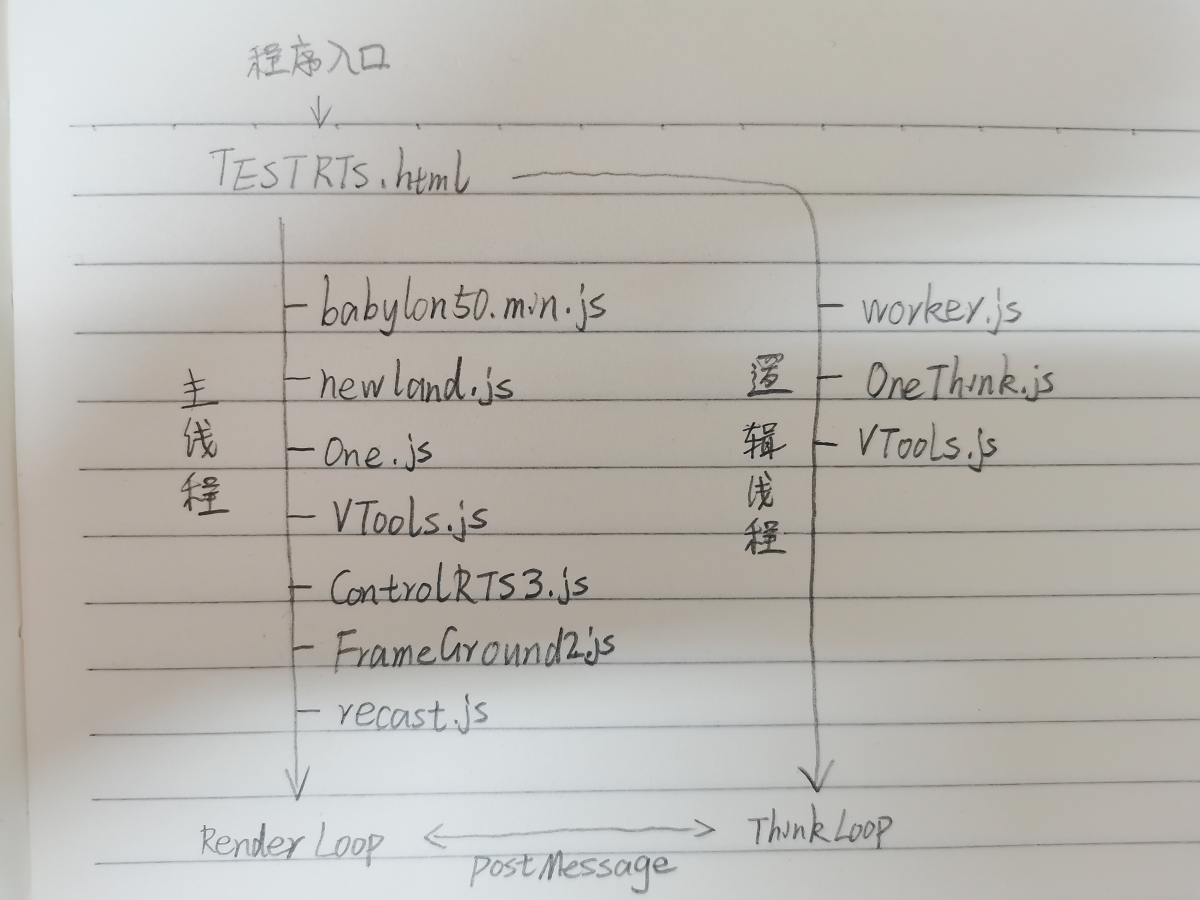 程序入口
TESTRTS.html
babylon50.min.js
newland.js
One.js
VTools.js
ControlRTS3.js
FrameGround2.js
recast.js
主线程
worker.js
OneThink.js
VTools.js
逻辑线程
Render Loop
postMessage
Think Loop